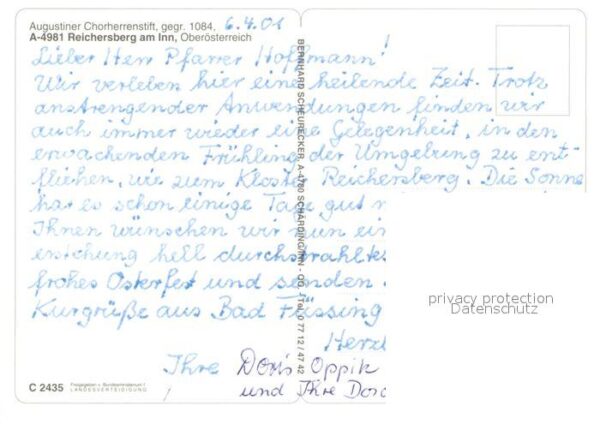 Augustiner Chorherrenstift, gegr. 1084,
A-4981 Reichersberg am Inn, Oberösterreich
6.4.01
Lieber Herr Pfarrer Hoffmann!
Wir verleben hier eine heilende Zeit. Trotz
anstrengender Anwendungen finden wir
auch immer wieder eine Gelegenheit, in den
erwachenden Frühling der Umgebung zu ent-
fliehen, wie zum Kloster Reichersberg. Die Sonne
hat es schon einige Tage gut
Ihnen wünschen wir nun ein
erstehung hell durchstrahltes
frohes Osterfest und senden
Kurgrüße aus Bad Füssing
Herzl
Ihre Doris Oppik
und Ihre Doro
BERNHARD SCHEURECKER, A-4780 SCHÄRDING/INN - OÖ., Tel. 0 77 12 / 47 42
privacy protection
Datenschutz
C 2435
Freigegeben v. Bundesministerium f.
LANDESVERTEIDIGUNG